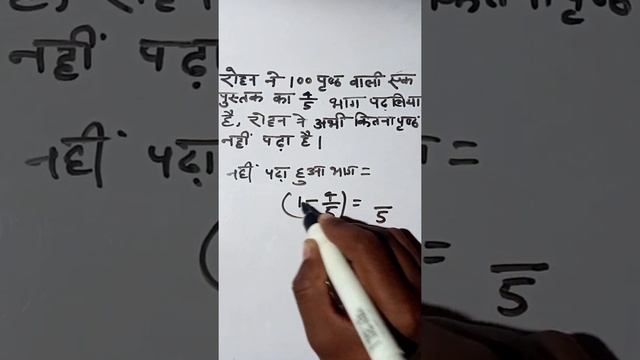 रोहन ने 100 पृष्ठ वाली एक
पुस्तक का 4/5 भाग पढ़ लिया
है, रोहन ने अभी कितना पृष्ठ
नहीं पढ़ा है।
नहीं पढ़ा हुआ भाग =
(1 - 4/5) = /5